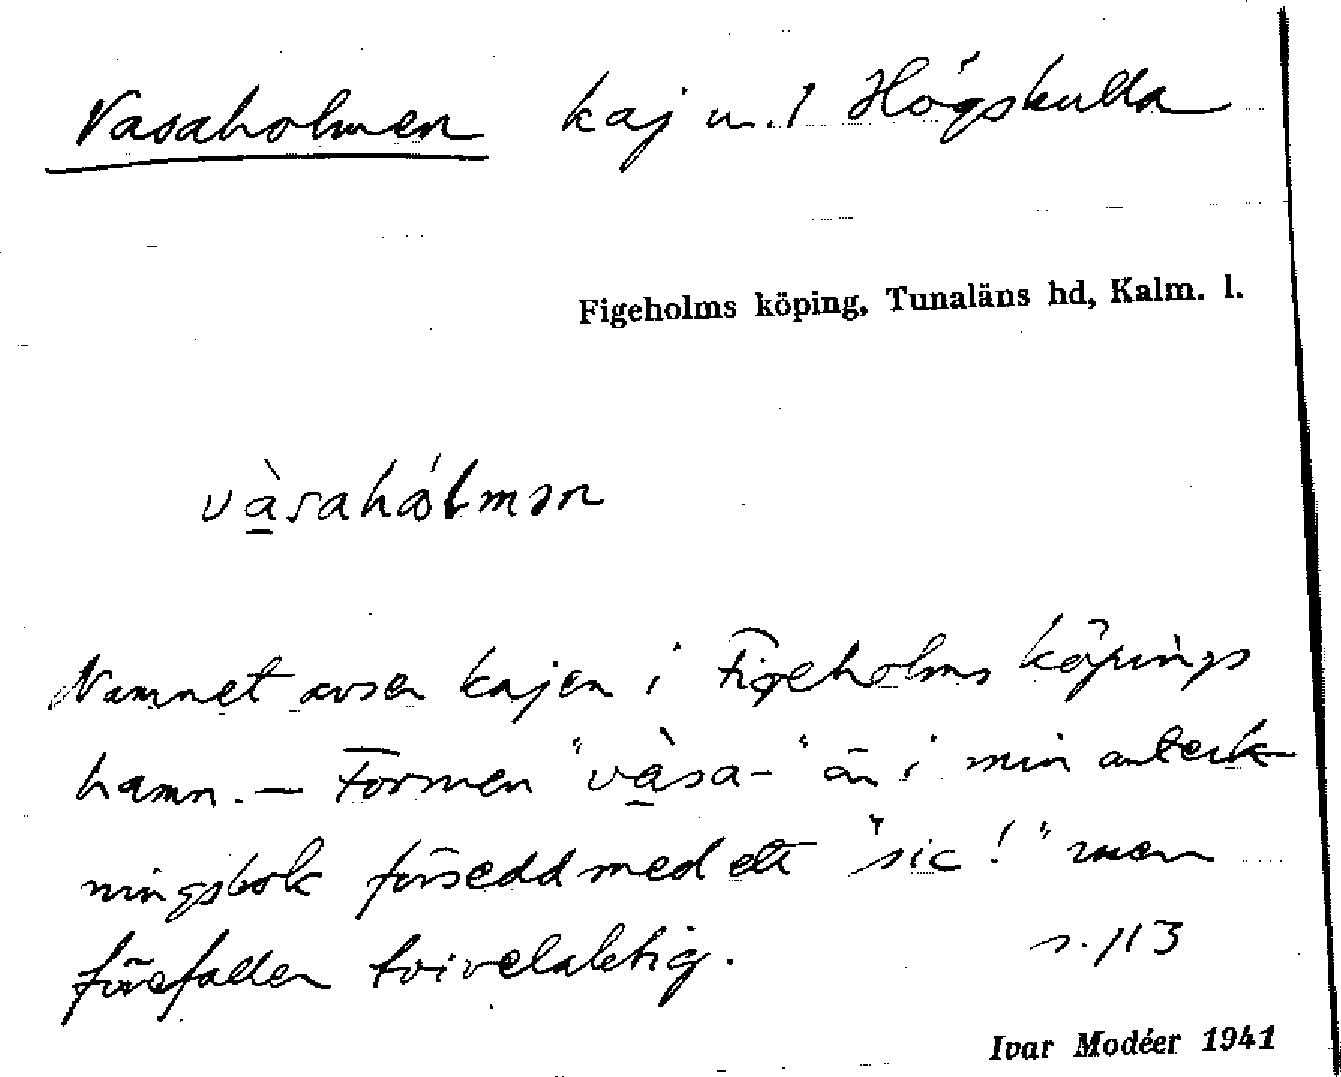 Vasaholmen kaj u. l Högskulla
Figeholms köping, Tunaläns hd, Kalm. l.
và̱sahǻlmən
Namnet avser kajen i Figeholms köpings
hamn. — Formen "và̱sa-" är i min anteck-
ningsbok försedd med ett "sic!" men
förefaller tvivelaktig. s. 113
Ivar Modéer 1941